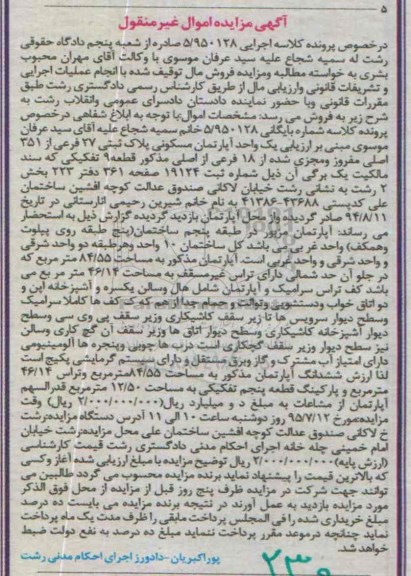 ۵
آگهی مزایده اموال غیر منقول
درخصوص پرونده کلاسه اجرایی ۵/۹۵۰۱۲۸ صادره از شعبه پنجم دادگاه حقوقی
رشت له سمیه شجاع علیه سید عرفان موسوی با وکالت آقای مهران محبوب
بشری به خواسته مطالبه ومزایده فروش مال توقیف شده با انجام عملیات اجرایی
و تشریفات قانونی وارزیابی مال از طریق کارشناس رسمی دادگستری رشت طبق
مقررات قانونی وبا حضور نماینده دادستان دادسرای عمومی وانقلاب رشت به
شرح زیر به فروش می رسد: مشخصات اموال:با توجه به ابلاغ شفاهی درخصوص
پرونده کلاسه شماره بایگانی ۵/۹۵۰۱۲۸ خانم سمیه شجاع علیه آقای سید عرفان
موسوی مبنی بر ارزیابی یک واحد آپارتمان مسکونی پلاک ثبتی ۲۷ فرعی از ۳۵۱
اصلی مفروز ومجزی شده از ۱۸ فرعی از اصلی مذکور قطعه تفکیکی که سند
مالکیت یک برگی آن ذیل شماره ثبت ۱۹۱۲۴ صفحه ۳۶۱ دفتر ۲۲۳ بخش
۲ رشت به نشانی رشت خیابان لاکانی صندوق عدالت کوچه افشین ساختمان
علی کدپستی ۴۳۶۸۸-۴۱۳۸۶ به نام خانم شیرین رحیمی انارستانی در تاریخ
۹۴/۸/۱۱ صادر گردیده واز محل آپارتمان بازدید گردیده گزارش ذیل به استحضار
می رساند: آپارتمان مزبور در طبقه پنجم ساختمان(پنج طبقه روی پیلوت
وهمکف) واحد غربی می باشد کل ساختمان ۱۰ واحد وهرطبقه دو واحد شرقی
و واحد شرقی و واحد غربی است. آپارتمان مذکور به مساحت ۸۴/۵۵ متر مربع که
در جلو آن حد شمالی دارای تراس غیرمسقف به مساحت ۴۶/۱۴ متر مر بع می
باشد کف تراس سرامیک و آپارتمان شامل هال وسالن یکسره و آشپزخانه اپن و
دو اتاق خواب ودستشویی وتوالت و حمام جدا از هم که کف ها کاملا سرامیک
وسطح دیوار سرویس ها تا زیر سقف کاشیکاری وزیر سقف پی وی سی وسطح
دیوار آشپزخانه کاشیکاری وسطح دیوار اتاق ها وزیر سقف آن گچ کاری وسالن
نیز سطح دیوار وزیر سقف گچکاری است درب ها چوبی وپنجره ها آلومینیومی
دارای امتیاز آب مشترک و گاز وبرق مستقل و دارای سیستم گرمایشی پکیج است
لذا ارزش ششدانگ آپارتمان مذکور به مساحت ۸۴/۵۵مترمربع وتراس ۴۶/۱۴
مترمربع و پارکینگ قطعه پنجم تفکیکی به مساحت ۱۲/۵۰ مترمربع قدرالسهم
آپارتمان از مشاعات به مبلغ د و میلیارد ریال(۲/۰۰۰/۰۰۰/۰۰۰ ریال) وقت
مزایده:مورخ ۹۵/۷/۱۲ روز دوشنبه ساعت ۱۰ الی ۱۱ آدرس دستگاه مزایده:رشت
خ لاکانی صندوق عدالت کوچه افشین ساختمان علی محل مزایده:رشت خیابان
امام خمینی چله خانه اجرای احکام مدنی دادگستری رشت قیمت کارشناسی
(ارزش پایه)۲/۰۰۰/۰۰۰/۰۰۰ ریال توضیح مزایده با مبلغ ارزیابی شده آغاز وکسی
که بالاترین قیمت را پیشنهاد نماید برنده مزایده محسوب می گردد طالبین می
توانند جهت شرکت در مزایده ظرف پنج روز قبل از مزایده از محل فوق الذکر
مورد مزایده بازدید به عمل آورند در نتیجه برنده مزایده می بایست ده درصد
مبلغ خریداری شده را فی المجلس پرداخت مابقی را ظرف مدت یک ماه پرداخت
نماید چنانچه درموعد مقرر پرداخت ننماید مبلغ ده درصد به نفع دولت ضبط
خواهد شد.
پوراکبریان -دادورز اجرای احکام مدنی رشت